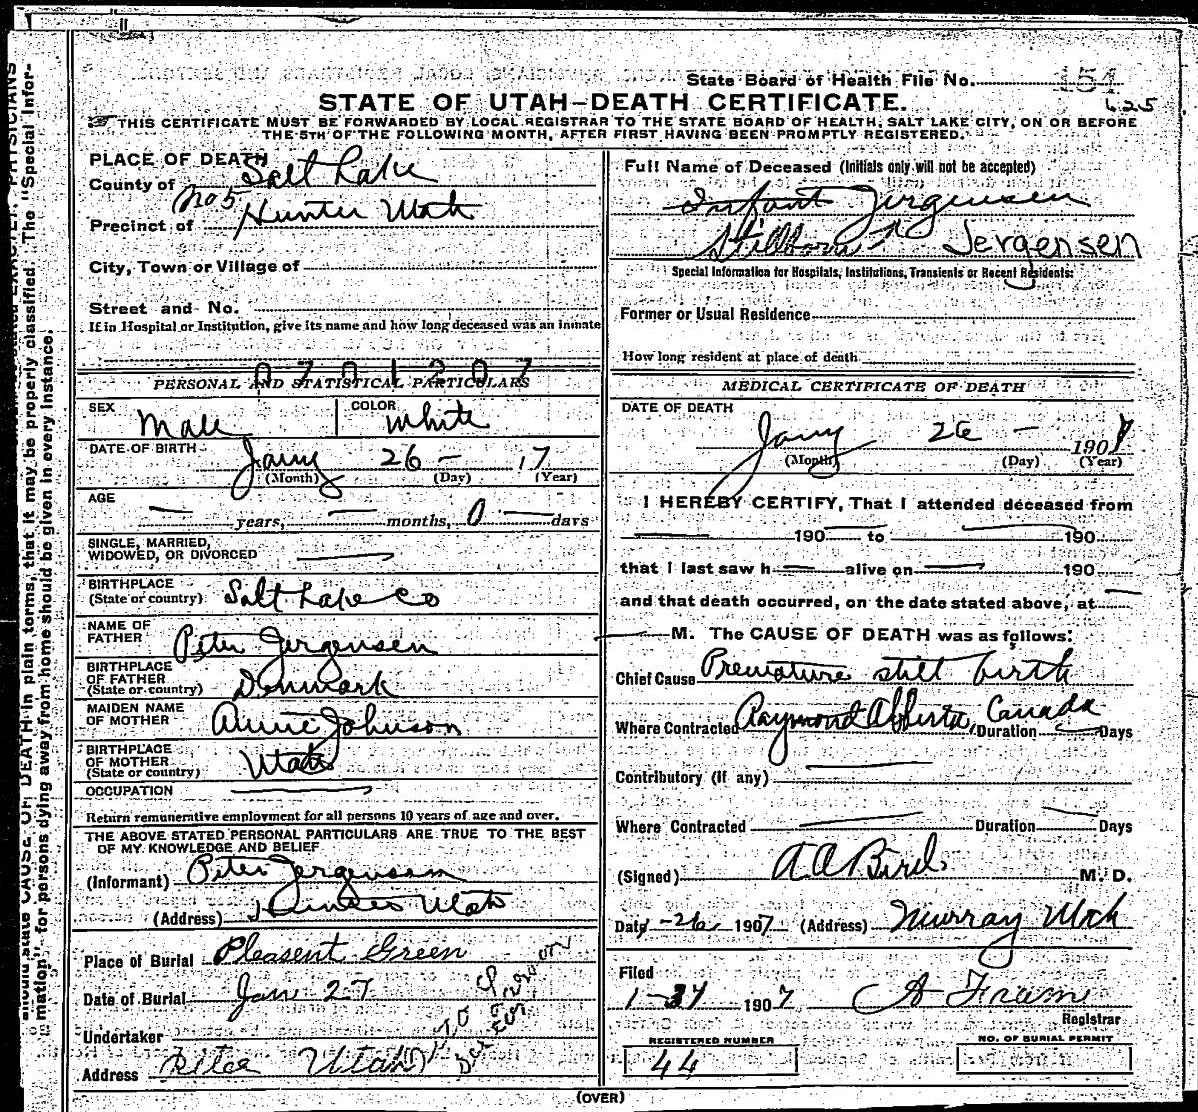 State Board of Health File No. 151
625
STATE OF UTAH—DEATH CERTIFICATE.
THIS CERTIFICATE MUST BE FORWARDED BY LOCAL REGISTRAR TO THE STATE BOARD OF HEALTH, SALT LAKE CITY, ON OR BEFORE
THE 5TH OF THE FOLLOWING MONTH, AFTER FIRST HAVING BEEN PROMPTLY REGISTERED.
PLACE OF DEATH
County of Salt Lake
Precinct of No 5 Hunter Utah
City, Town or Village of
Street and No.
If in Hospital or Institution, give its name and how long deceased was an inmate
0701207
PERSONAL AND STATISTICAL PARTICULARS
SEX Male COLOR White
DATE OF BIRTH Jany 26 — 17
(Month) (Day) (Year)
AGE
— years, — months, 0 — days
SINGLE, MARRIED,
WIDOWED, OR DIVORCED —
BIRTHPLACE
(State or country) Salt Lake Co
NAME OF
FATHER Peter Jergensen
BIRTHPLACE
OF FATHER
(State or country) Denmark
MAIDEN NAME
OF MOTHER Annie Johnson
BIRTHPLACE
OF MOTHER
(State or country) Utah
OCCUPATION —
Return remunerative employment for all persons 10 years of age and over.
THE ABOVE STATED PERSONAL PARTICULARS ARE TRUE TO THE BEST
OF MY KNOWLEDGE AND BELIEF
(Informant) Peter Jergensen
(Address) Hunter Utah
Place of Burial Pleasent Green
Date of Burial Jan 27
Undertaker
Address Utah
Full Name of Deceased (Initials only will not be accepted)
Infant Jergensen
Stillborn Jergensen
Special Information for Hospitals, Institutions, Transients or Recent Residents:
Former or Usual Residence
How long resident at place of death
MEDICAL CERTIFICATE OF DEATH
DATE OF DEATH
Jany 26 — 1907
(Month) (Day) (Year)
I HEREBY CERTIFY, That I attended deceased from
— 190 — to — 190
that I last saw h — alive on — 190
and that death occurred, on the date stated above, at —
— M. The CAUSE OF DEATH was as follows:
Chief Cause Premature still birth
Where Contracted Raymond Alberta, Canada Duration — Days
Contributory (if any) —
Where Contracted — Duration — Days
(Signed) A A Bird M. D.
Date 1-26 1907 (Address) Murray Utah
Filed
1-31 1907 A Frame
Registrar
REGISTERED NUMBER
44
NO. OF BURIAL PERMIT
(OVER)
should state CAUSE OF DEATH in plain terms, that it may be properly classified. The "Special Infor-
mation" for persons dying away from home should be given in every instance.